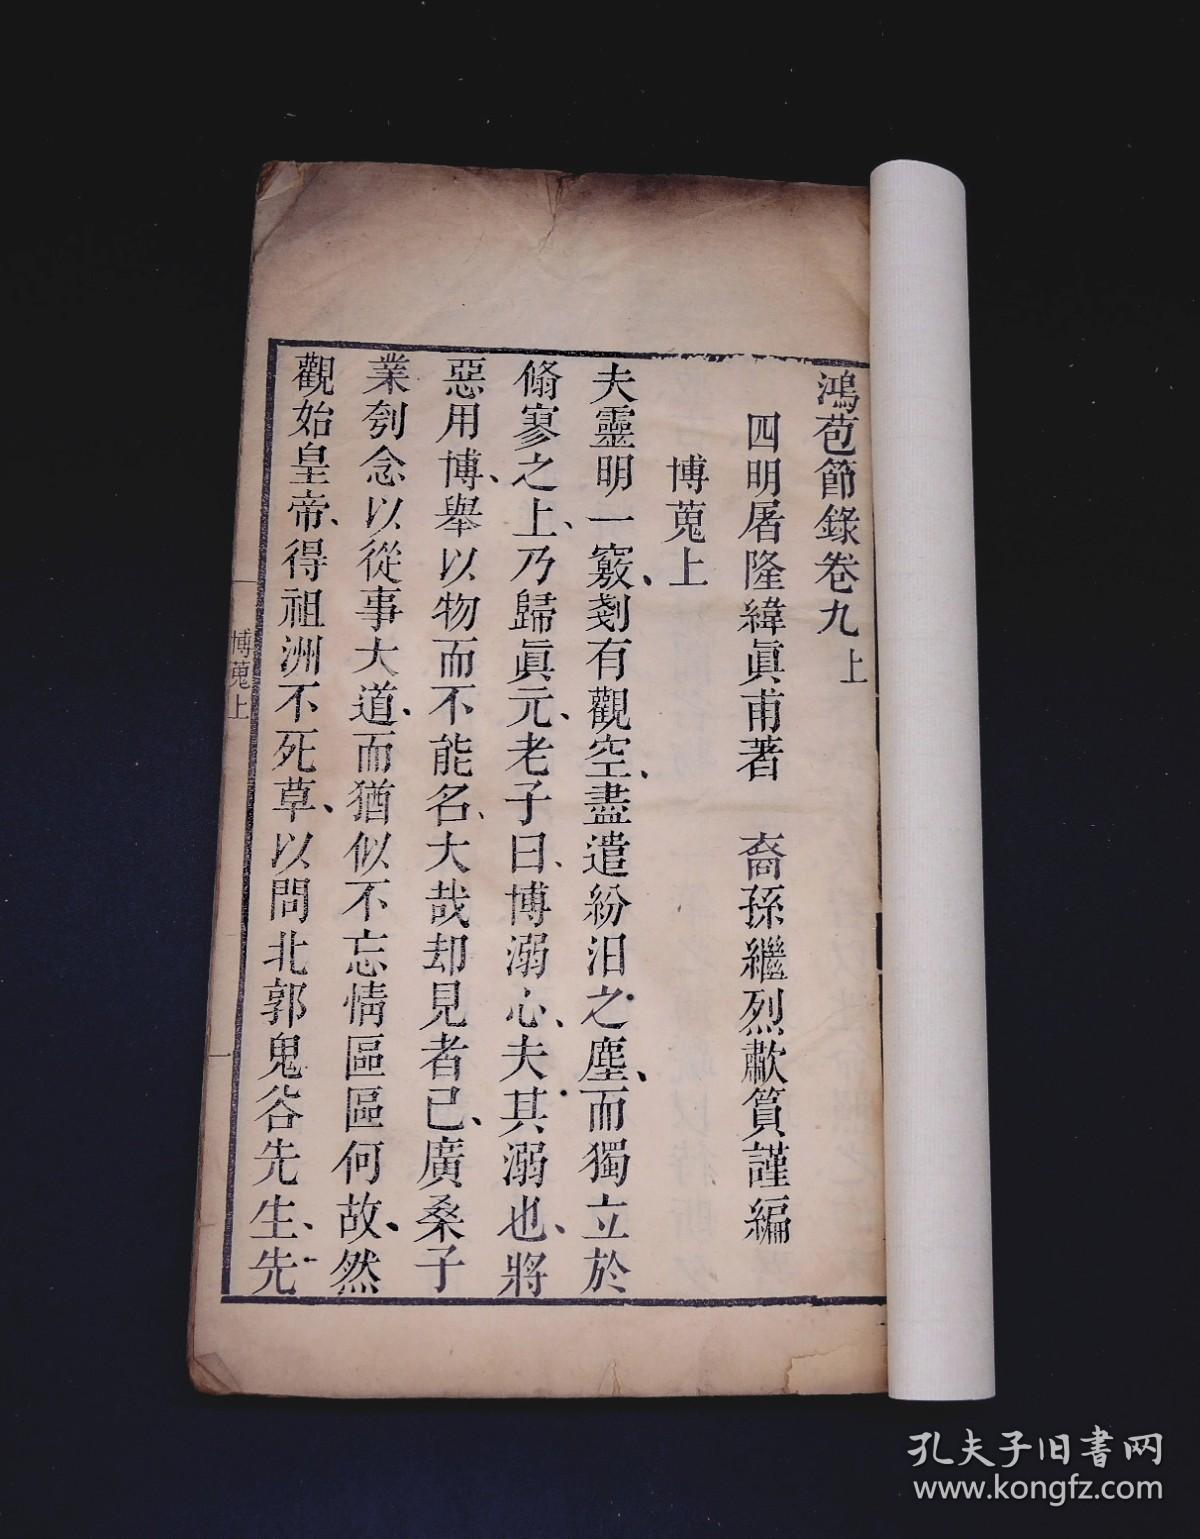 鴻苞節錄卷九上
四明屠隆緯眞甫著　裔孫繼烈歗篔謹編
博蒐上
夫靈明一竅、剗有觀空、盡遣紛汨之塵、而獨立於
翛寥之上、乃歸眞元、老子曰、博溺心、夫其溺也、將
惡用博、舉以物而不能名、大哉却見者已、廣桑子
業刳念以從事大道、而猶似不忘情區區何故、然
觀始皇帝、得祖洲不死草、以問北郭鬼谷先生、先
博蒐上
一
孔夫子旧书网
www.kongfz.com